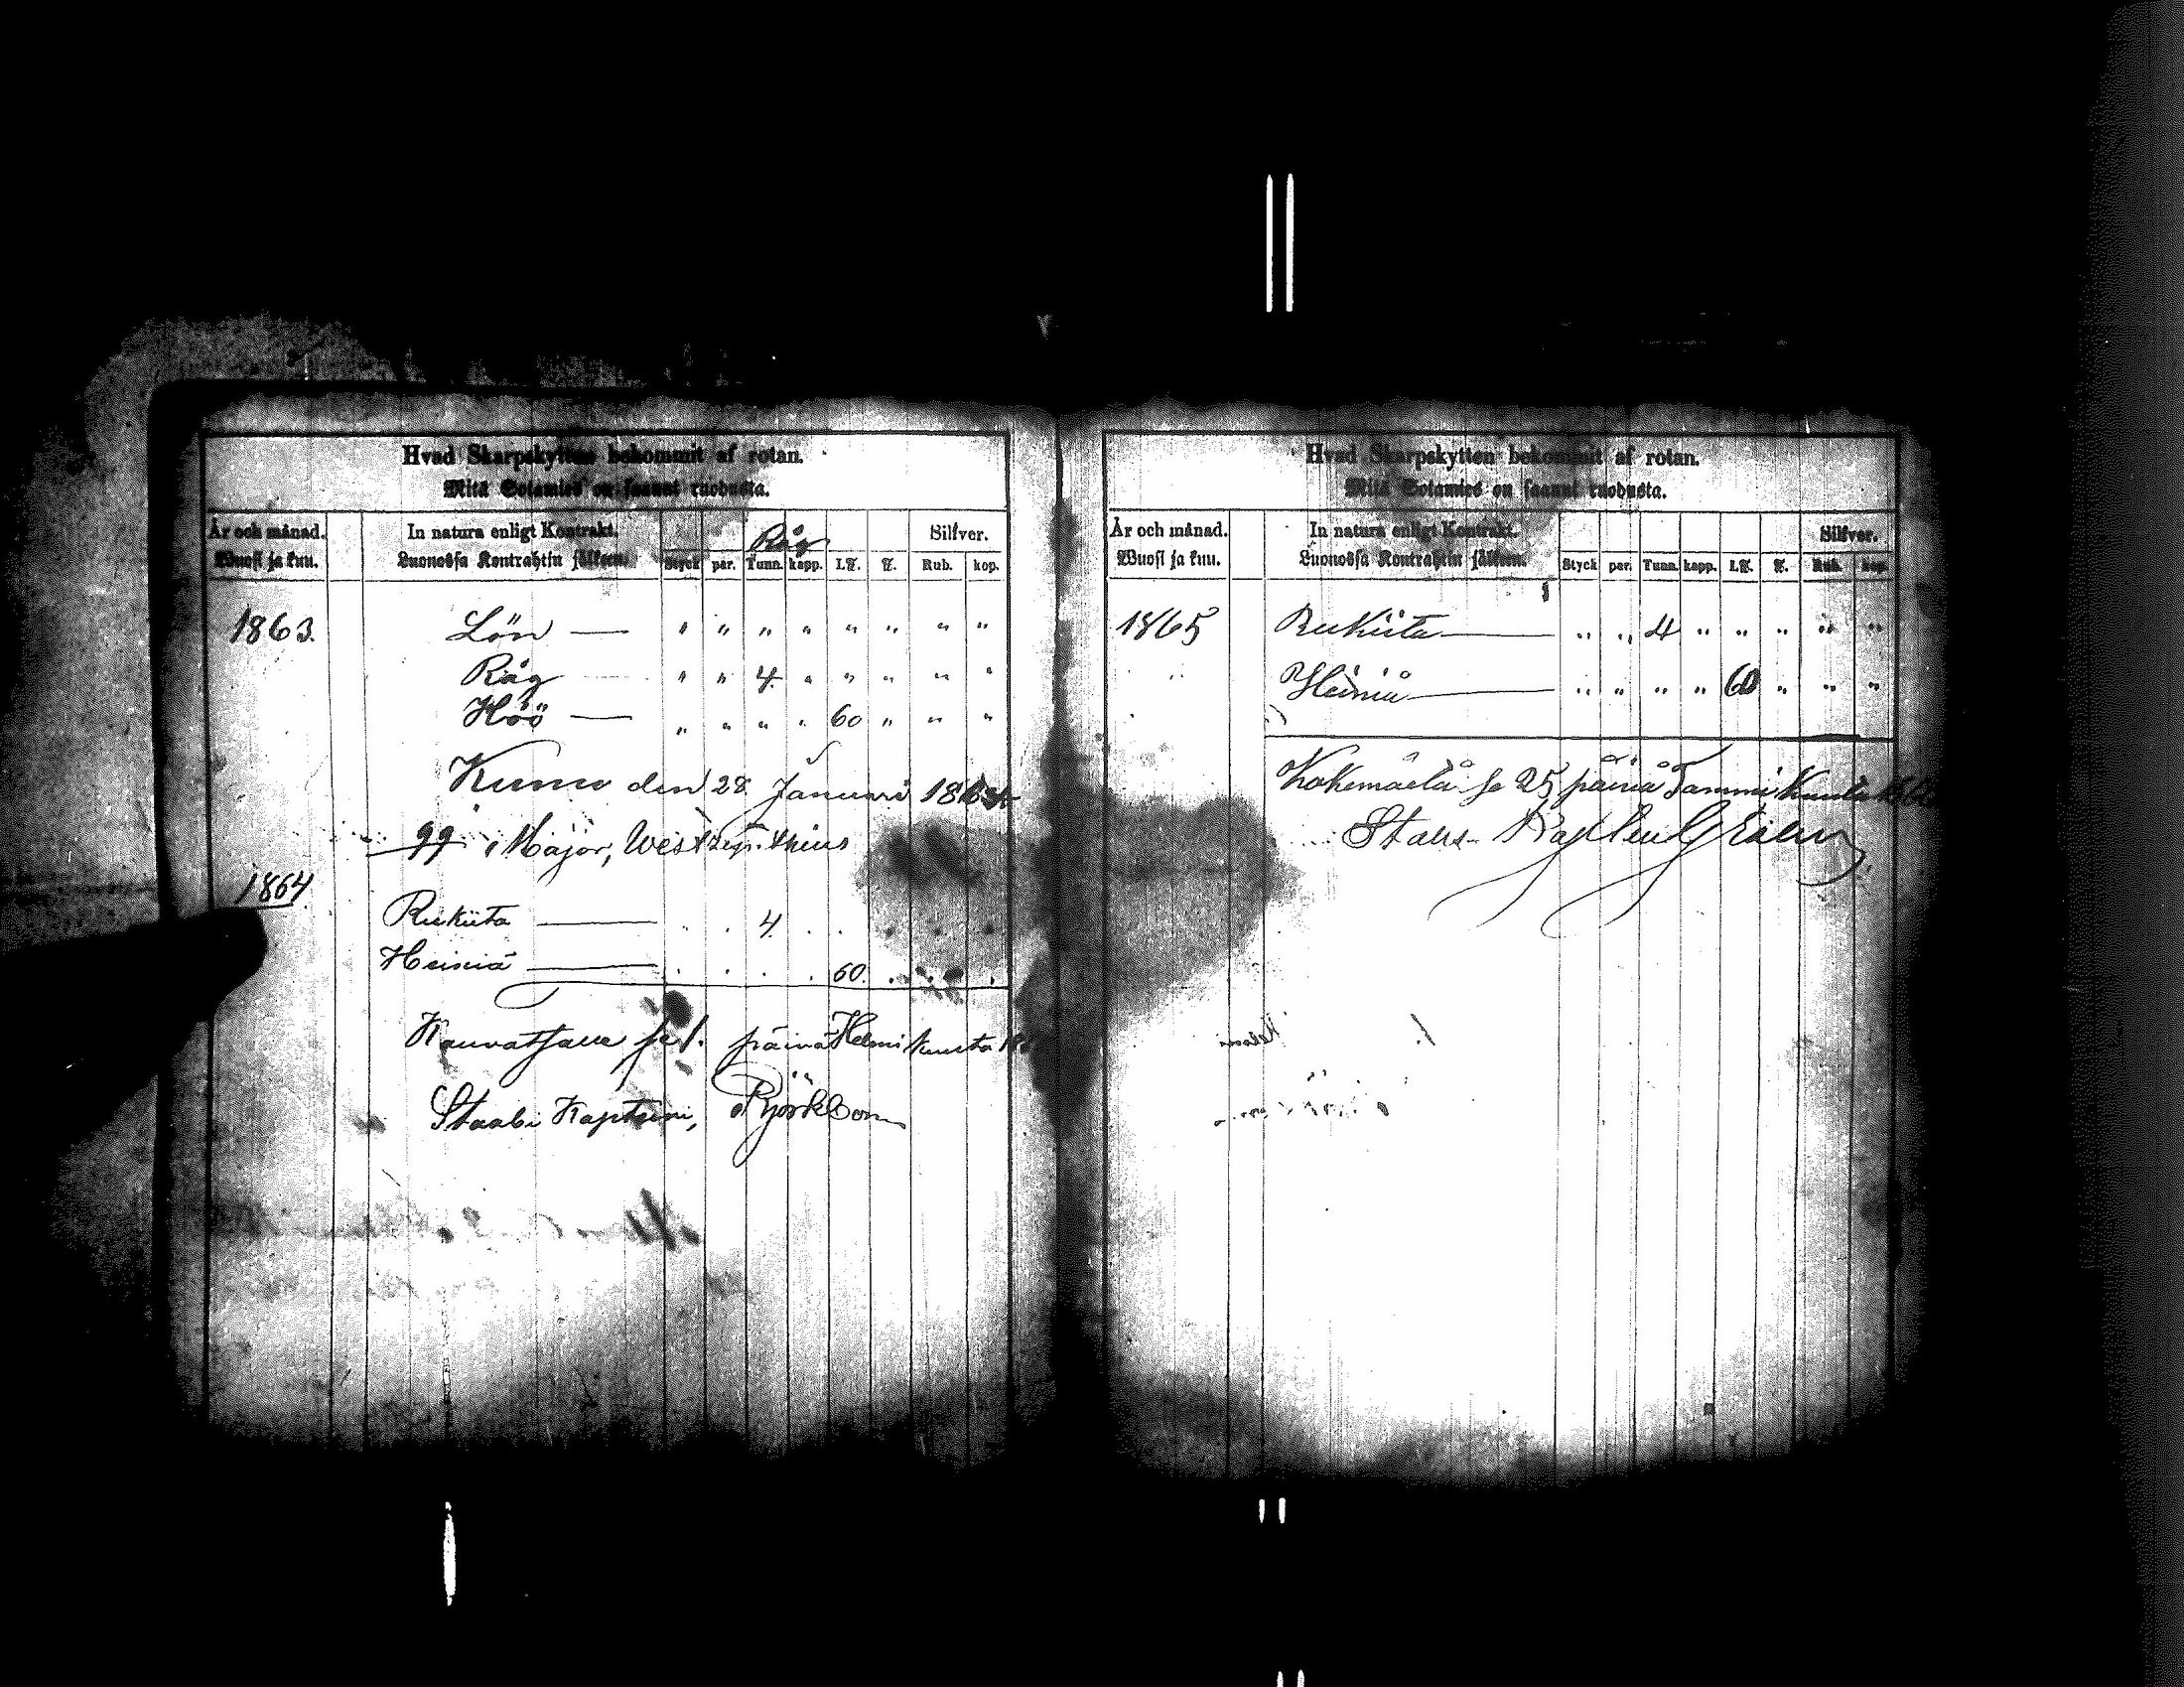 Hvad Skarpskytten bekommit af rotan.
Mitä Sotamies on saanut ruodusta.
År och månad.
Wuosi ja kuu.
In natura enligt Kontrakt.
Luonossa Kontrahtin jälkeen.
Råg
Silfver.
Styck par. Tunn. kapp. L℔. ℔. Rub. kop.
1863. Lön — " " " " " " " "
Råg " " 4. " " " " "
Höö — " " " " 60 " " "
Kumo den 28 Januari
99 Major,
1864.
Rukiita — . . 4. . . . . .
Heiniä — . . . . 60. . . .
se 1. päivä Helmi kuuta
Staabi Kapteini, Björkbom
Hvad Skarpskytten bekommit af rotan.
Mitä Sotamies on saanut ruodusta.
År och månad.
Wuosi ja kuu.
In natura enligt Kontrakt.
Luonossa Kontrahtin jälkeen.
Silfver.
Styck par. Tunn. kapp. L℔. ℔. Rub. kop.
1865 Rukiita — " " 4 " " " " "
Heiniä — " " " " 60 " " "
Kokemäelä se 25 päivä Tammi Kuuta
Stabs-